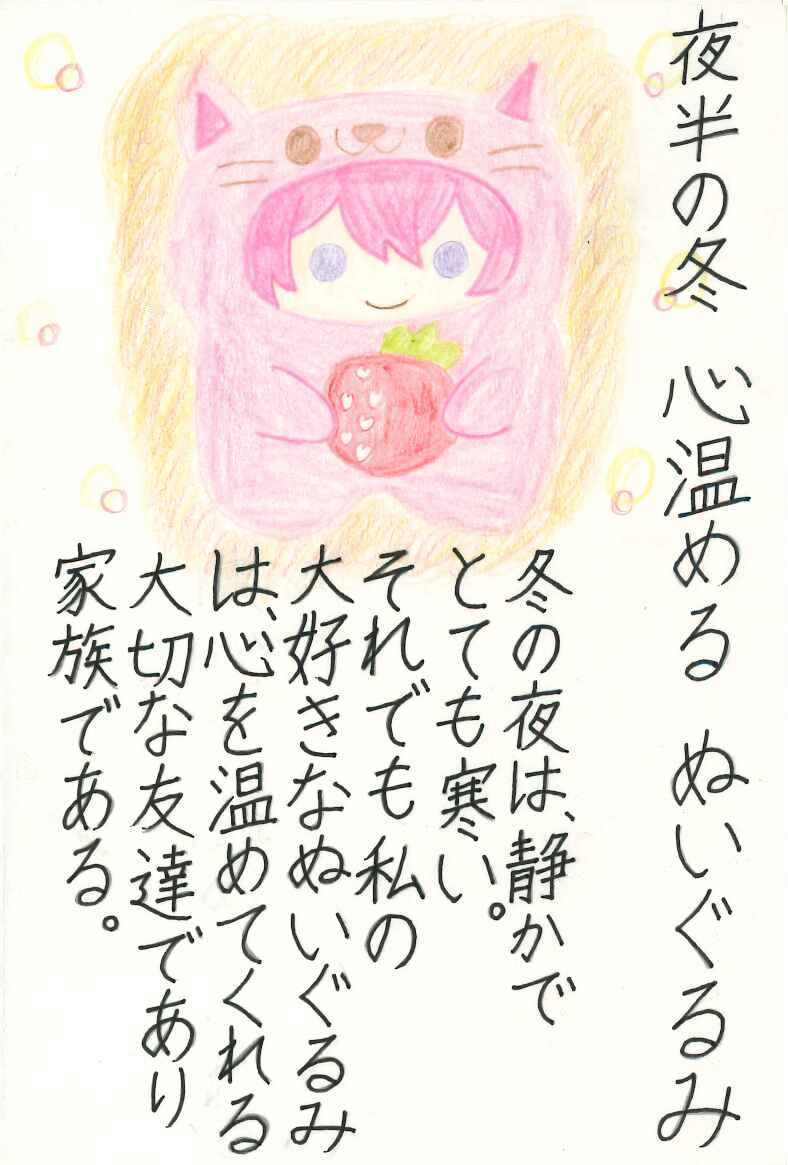 夜半の冬 心温める ぬいぐるみ
冬の夜は、静かで
とても寒い。
それでも私の
大好きなぬいぐるみ
は、心を温めてくれる
大切な友達であり
家族である。